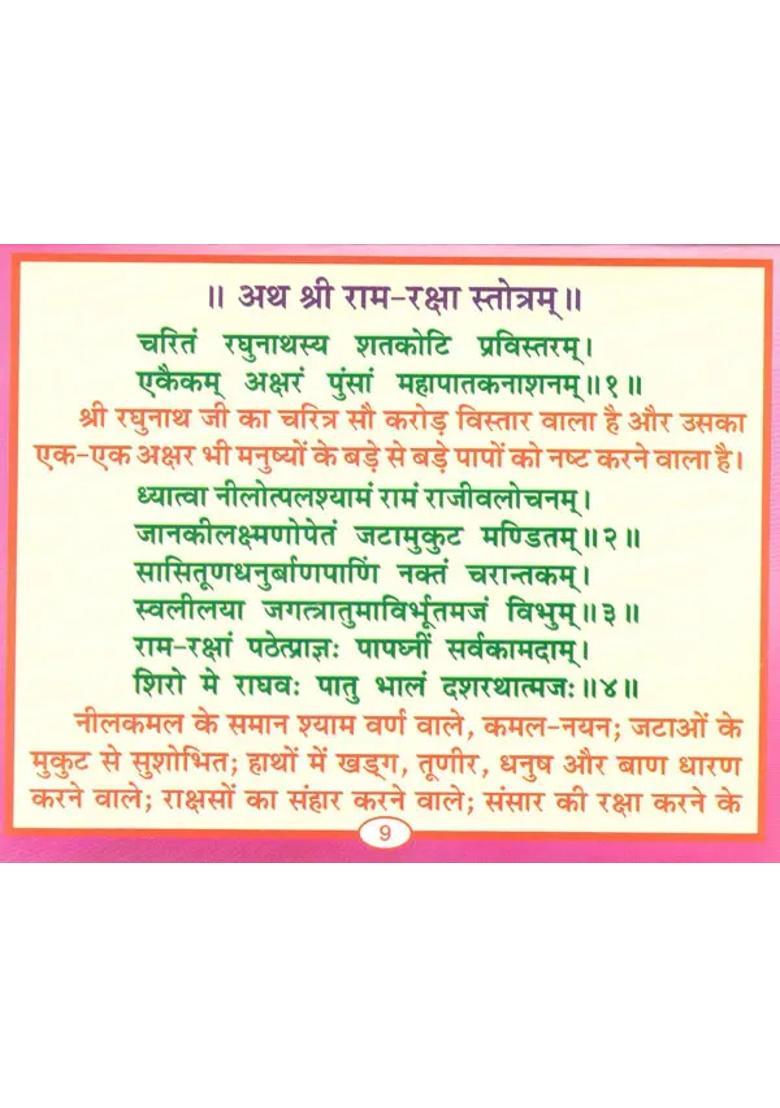 ॥ अथ श्री राम-रक्षा स्तोत्रम्॥
चरितं रघुनाथस्य शतकोटि प्रविस्तरम्।
एकैकम् अक्षरं पुंसां महापातकनाशनम्॥१॥
श्री रघुनाथ जी का चरित्र सौ करोड़ विस्तार वाला है और उसका
एक-एक अक्षर भी मनुष्यों के बड़े से बड़े पापों को नष्ट करने वाला है।
ध्यात्वा नीलोत्पलश्यामं रामं राजीवलोचनम्।
जानकीलक्ष्मणोपेतं जटामुकुट मण्डितम्॥२॥
सासितूणधनुर्बाणपाणिं नक्तं चरान्तकम्।
स्वलीलया जगत्रातुमाविर्भूतमजं विभुम्॥३॥
राम-रक्षां पठेत्प्राज्ञः पापघ्नीं सर्वकामदाम्।
शिरो मे राघवः पातु भालं दशरथात्मजः॥४॥
नीलकमल के समान श्याम वर्ण वाले, कमल-नयन; जटाओं के
मुकुट से सुशोभित; हाथों में खड्ग, तूणीर, धनुष और बाण धारण
करने वाले; राक्षसों का संहार करने वाले; संसार की रक्षा करने के
9